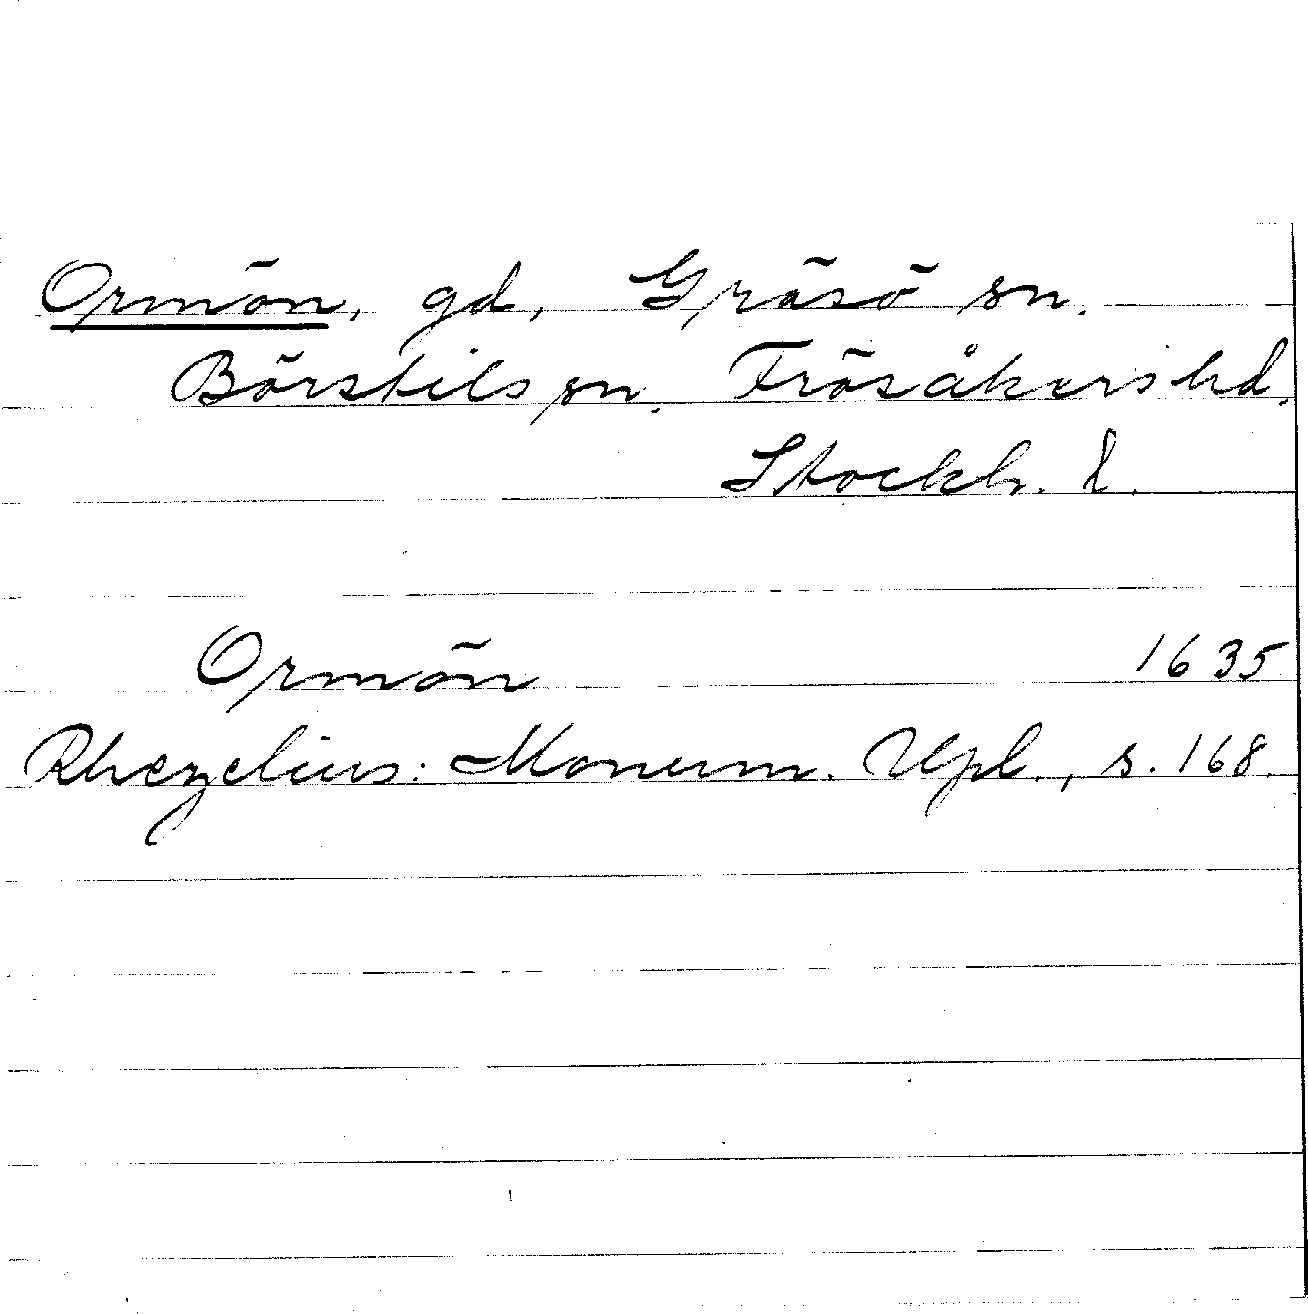 Ormön, gd, Gräsö sn.
Börstils sn. Frösåkers hd.
Stockh. l.
Ormön 1635
Rhezelius: Monum. Upl., s. 168.